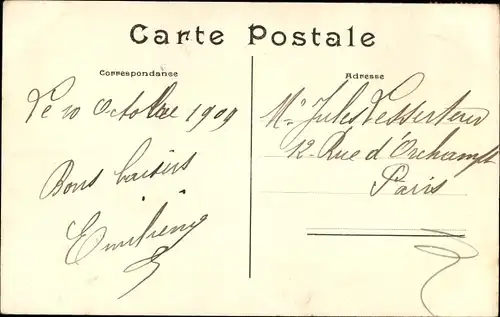 Carte Postale
Correspondance
Adresse
Le 10 Octobre 1909
Bons baisers
Emilienne
Mr Jules Tesserteur
12 Rue d'Orchampt
Paris